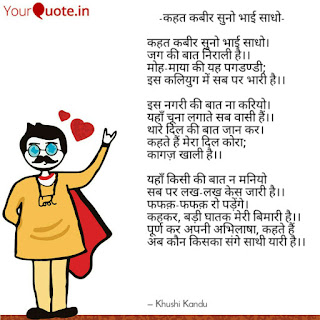 YourQuote.in
-कहत कबीर सुनो भाई साधो-
कहत कबीर सुनो भाई साधो।
जग की बात निराली है।।
मोह-माया की यह पगडण्डी;
इस कलियुग में सब पर भारी है।।
इस नगरी की बात ना करियो।
यहाँ चूना लगाते सब वासी हैं।।
थारे दिल की बात जान कर।
कहते हैं मेरा दिल कोरा;
कागज़ खाली है।।
यहाँ किसी की बात न मनियो
सब पर लख-लख केस जारी है।।
फफक़-फफक़ रो पड़ेंगे।
कहकर, बड़ी घातक मेरी बिमारी है।।
पूर्ण कर अपनी अभिलाषा, कहते हैं
अब कौन किसका संगे साथी यारी है।।
– Khushi Kandu